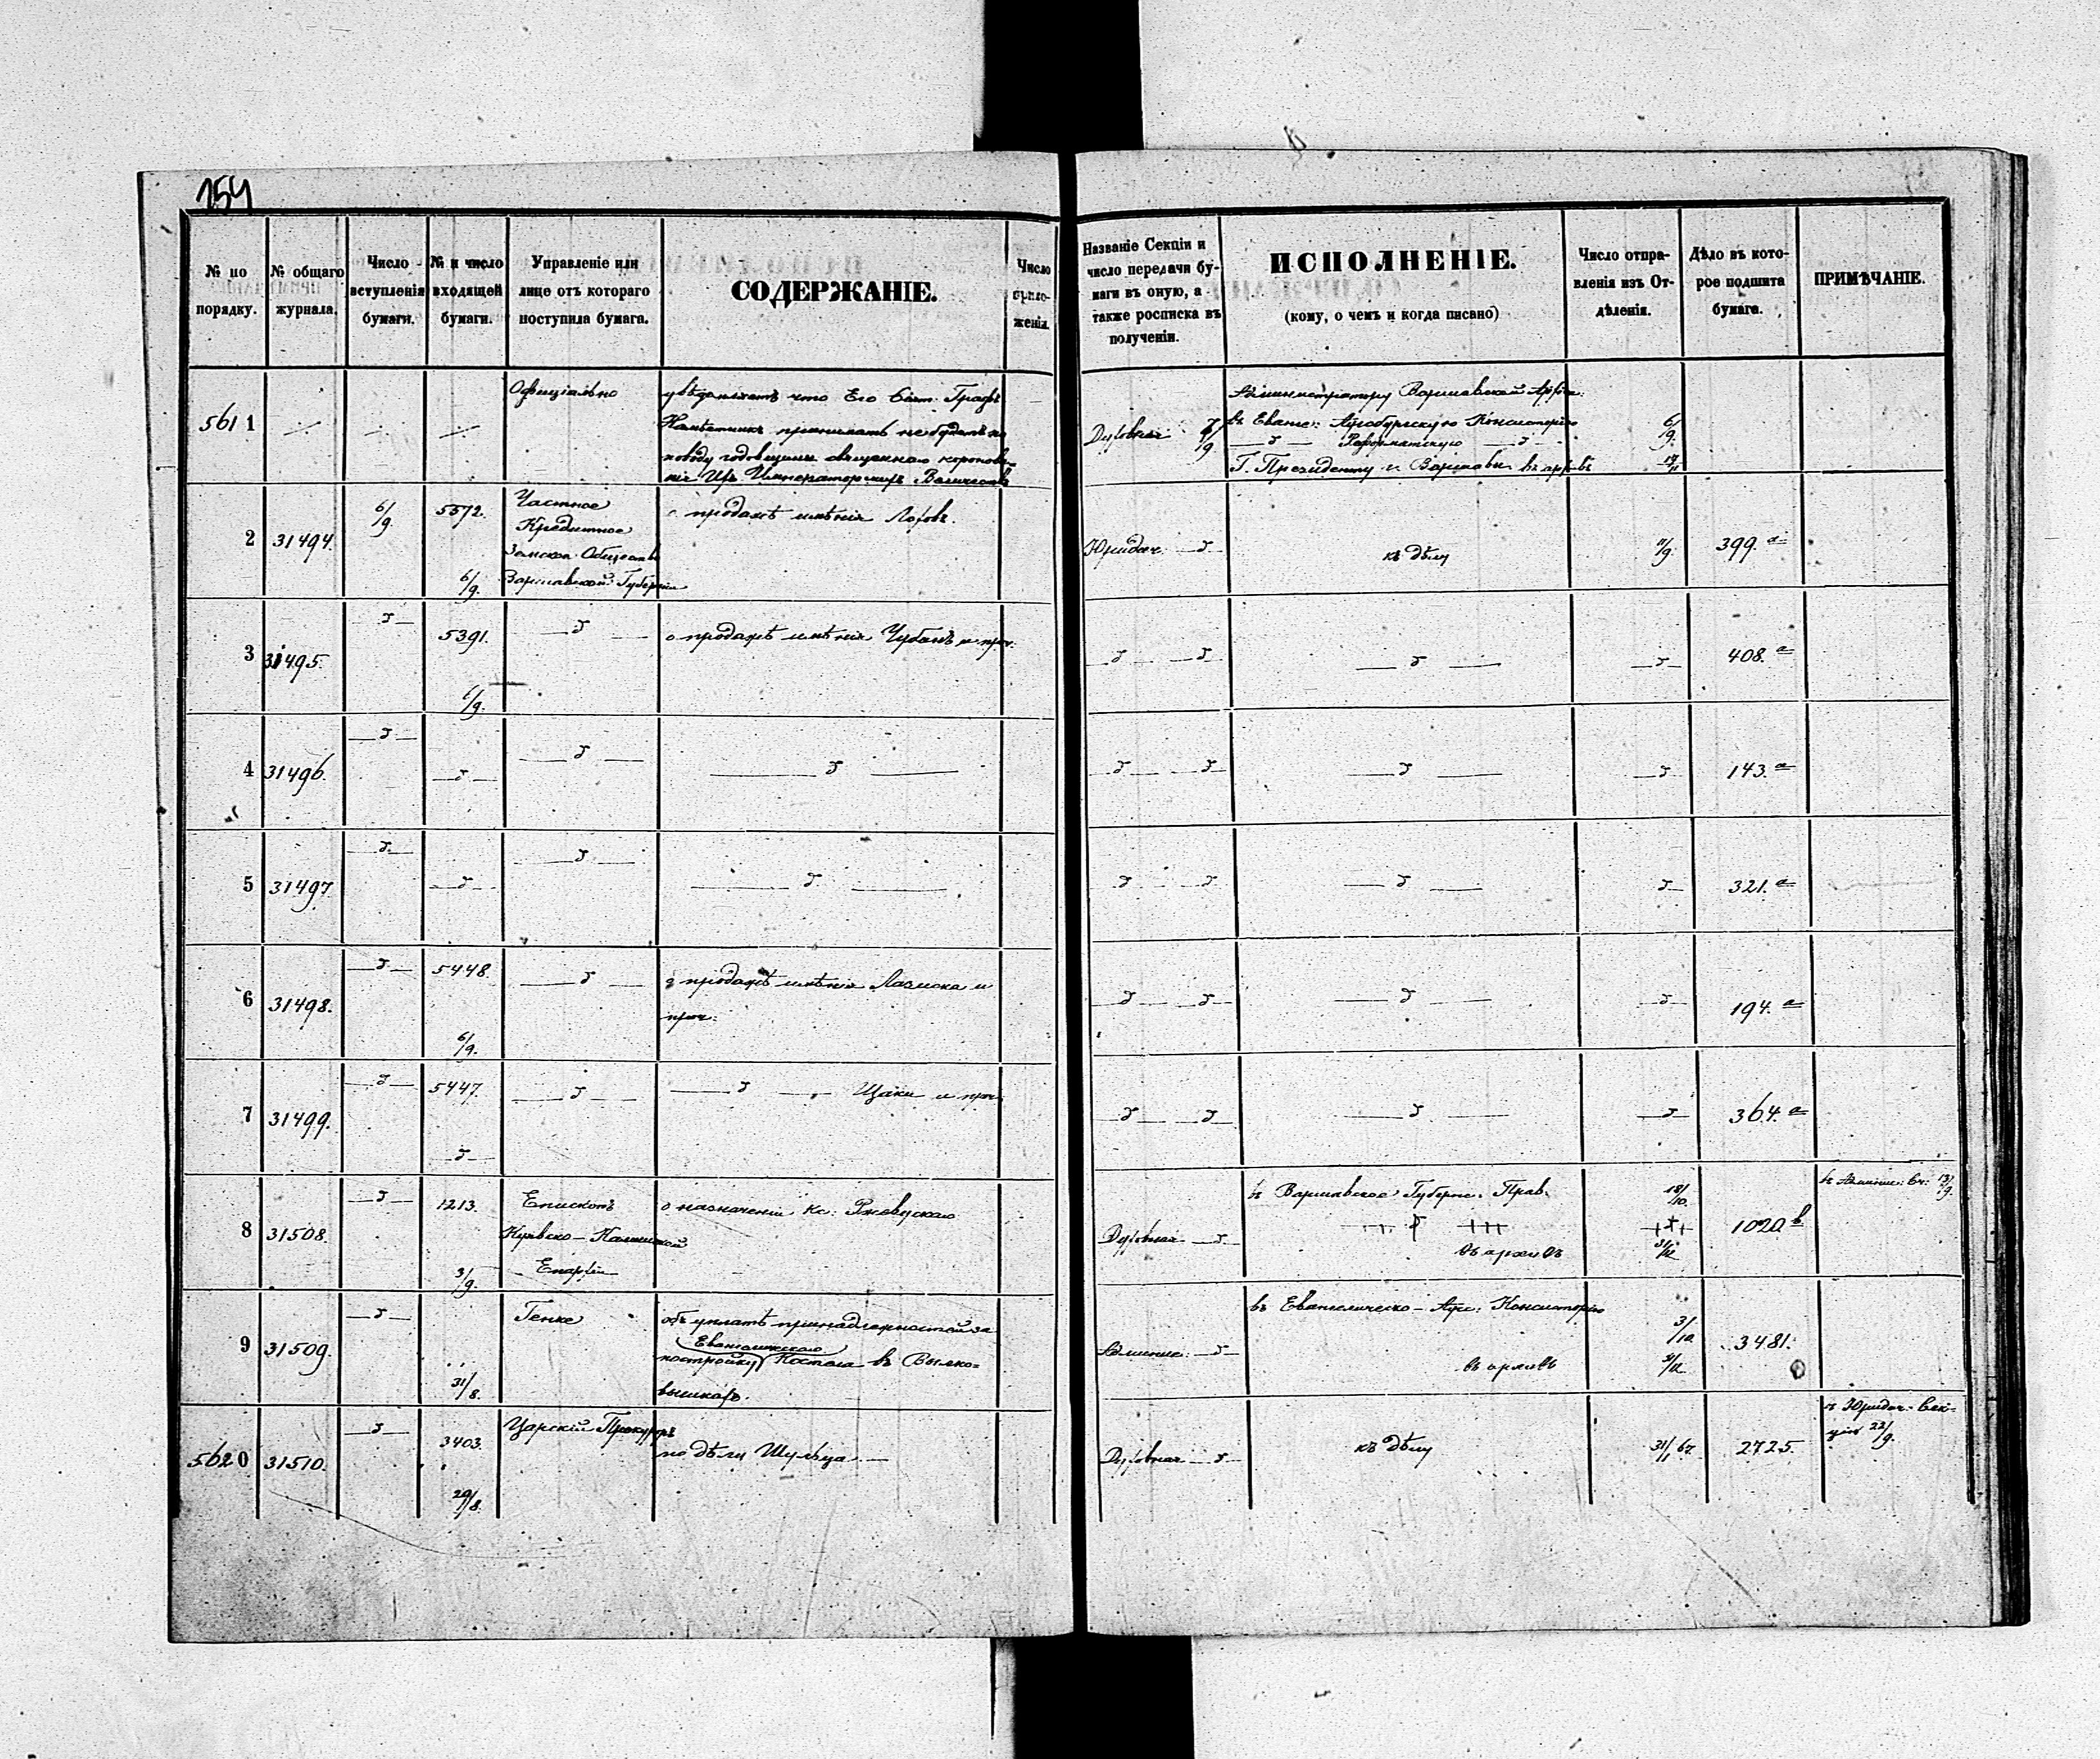 154
№ по порядку.
№ общаго журнала.
Число вступленія бумаги.
№ и число входящей бумаги.
Управленіе или лице отъ котораго поступила бумага.
СОДЕРЖАНІЕ.
Число прило- женія.
Названіе Секціи и число передачи бу- маги въ оную, а также росписка въ полученіи.
ИСПОЛНЕНІЕ.
(кому, о чемъ и когда писано)
Число отпра- вленія изъ От- дѣленія.
Дѣло въ кото- рое подшита бумага.
ПРИМѢЧАНІЕ.
5611
Официально
увѣдомляетъ что Его Сіят. Графъ
Намѣстникъ принимать не будетъ по
поводу годовщины священнаго коронова-
нія Ихъ Императорскихъ Величествъ
Духовная 7/9
Администратору Варшавской Архіеп:
въ Еванг: Аугсбургскую Консисторію
Реформатскую
Г. Президенту г. Варшавы въ архивъ
6/9.
2 31494. 6/9. 5572. 6/9.
Частное
Кредитное
Земское Общество
Варшавской Губерніи
о продажѣ имѣнія Лохов.
Юридич. къ дѣлу 11/9. 399. а
3 31495. 5391. 6/9.
о продажѣ имѣнія Чубинъ и проч.
408. а
4 31496.
143. а
5 31497.
321. а
6 31498. 5448. 6/9.
о продажѣ имѣнія Лазиска и
проч:
194. а
7 31499. 5447.
Щаки и проч.
364. а
8 31508. 1213. 3/9.
Епископъ
Куявско-Калишской
Епархіи
о назначеніи Кс: Ржевускаго
Духовная
въ Варшавское Губерн. Прав.
въ архивъ
18/10. 31/12
1020. в
въ Админис: Сек: 13/9.
9 31509. 31/8.
Генке
объ уплатѣ принадлежностей за
Евангелическаго
постройку Костела въ Вылко-
вышкахъ.
Админис:
въ Евангелическо-Аугс: Консисторію
въ архивъ
3/10
3481.
5620 31510. 3403. 29/8.
Царскій Прокуроръ
по дѣлу Шульца
Духовная къ дѣлу 31/1 67. 2725.
въ Юридич. Сек-
цію 22/9.